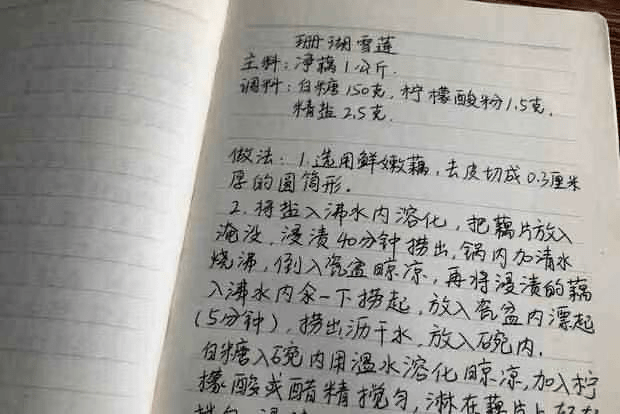 珊瑚雪莲
主料：净藕1公斤．
调料：白糖150克，柠檬酸粉1.5克，
精盐2.5克．
做法：1.选用鲜嫩藕，去皮切成0.3厘米
厚的圆筒形．
2.将盐入沸水内溶化，把藕片放入
淹没，浸渍40分钟捞出，锅内加清水
烧沸，倒入瓷盆晾凉，再将浸渍的藕
入沸水内汆一下捞起，放入瓷盆内漂起
(5分钟)，捞出沥干水，放入碗内．
白糖入碗内用温水溶化晾凉，加入柠
檬酸或醋精搅匀，淋在藕片上